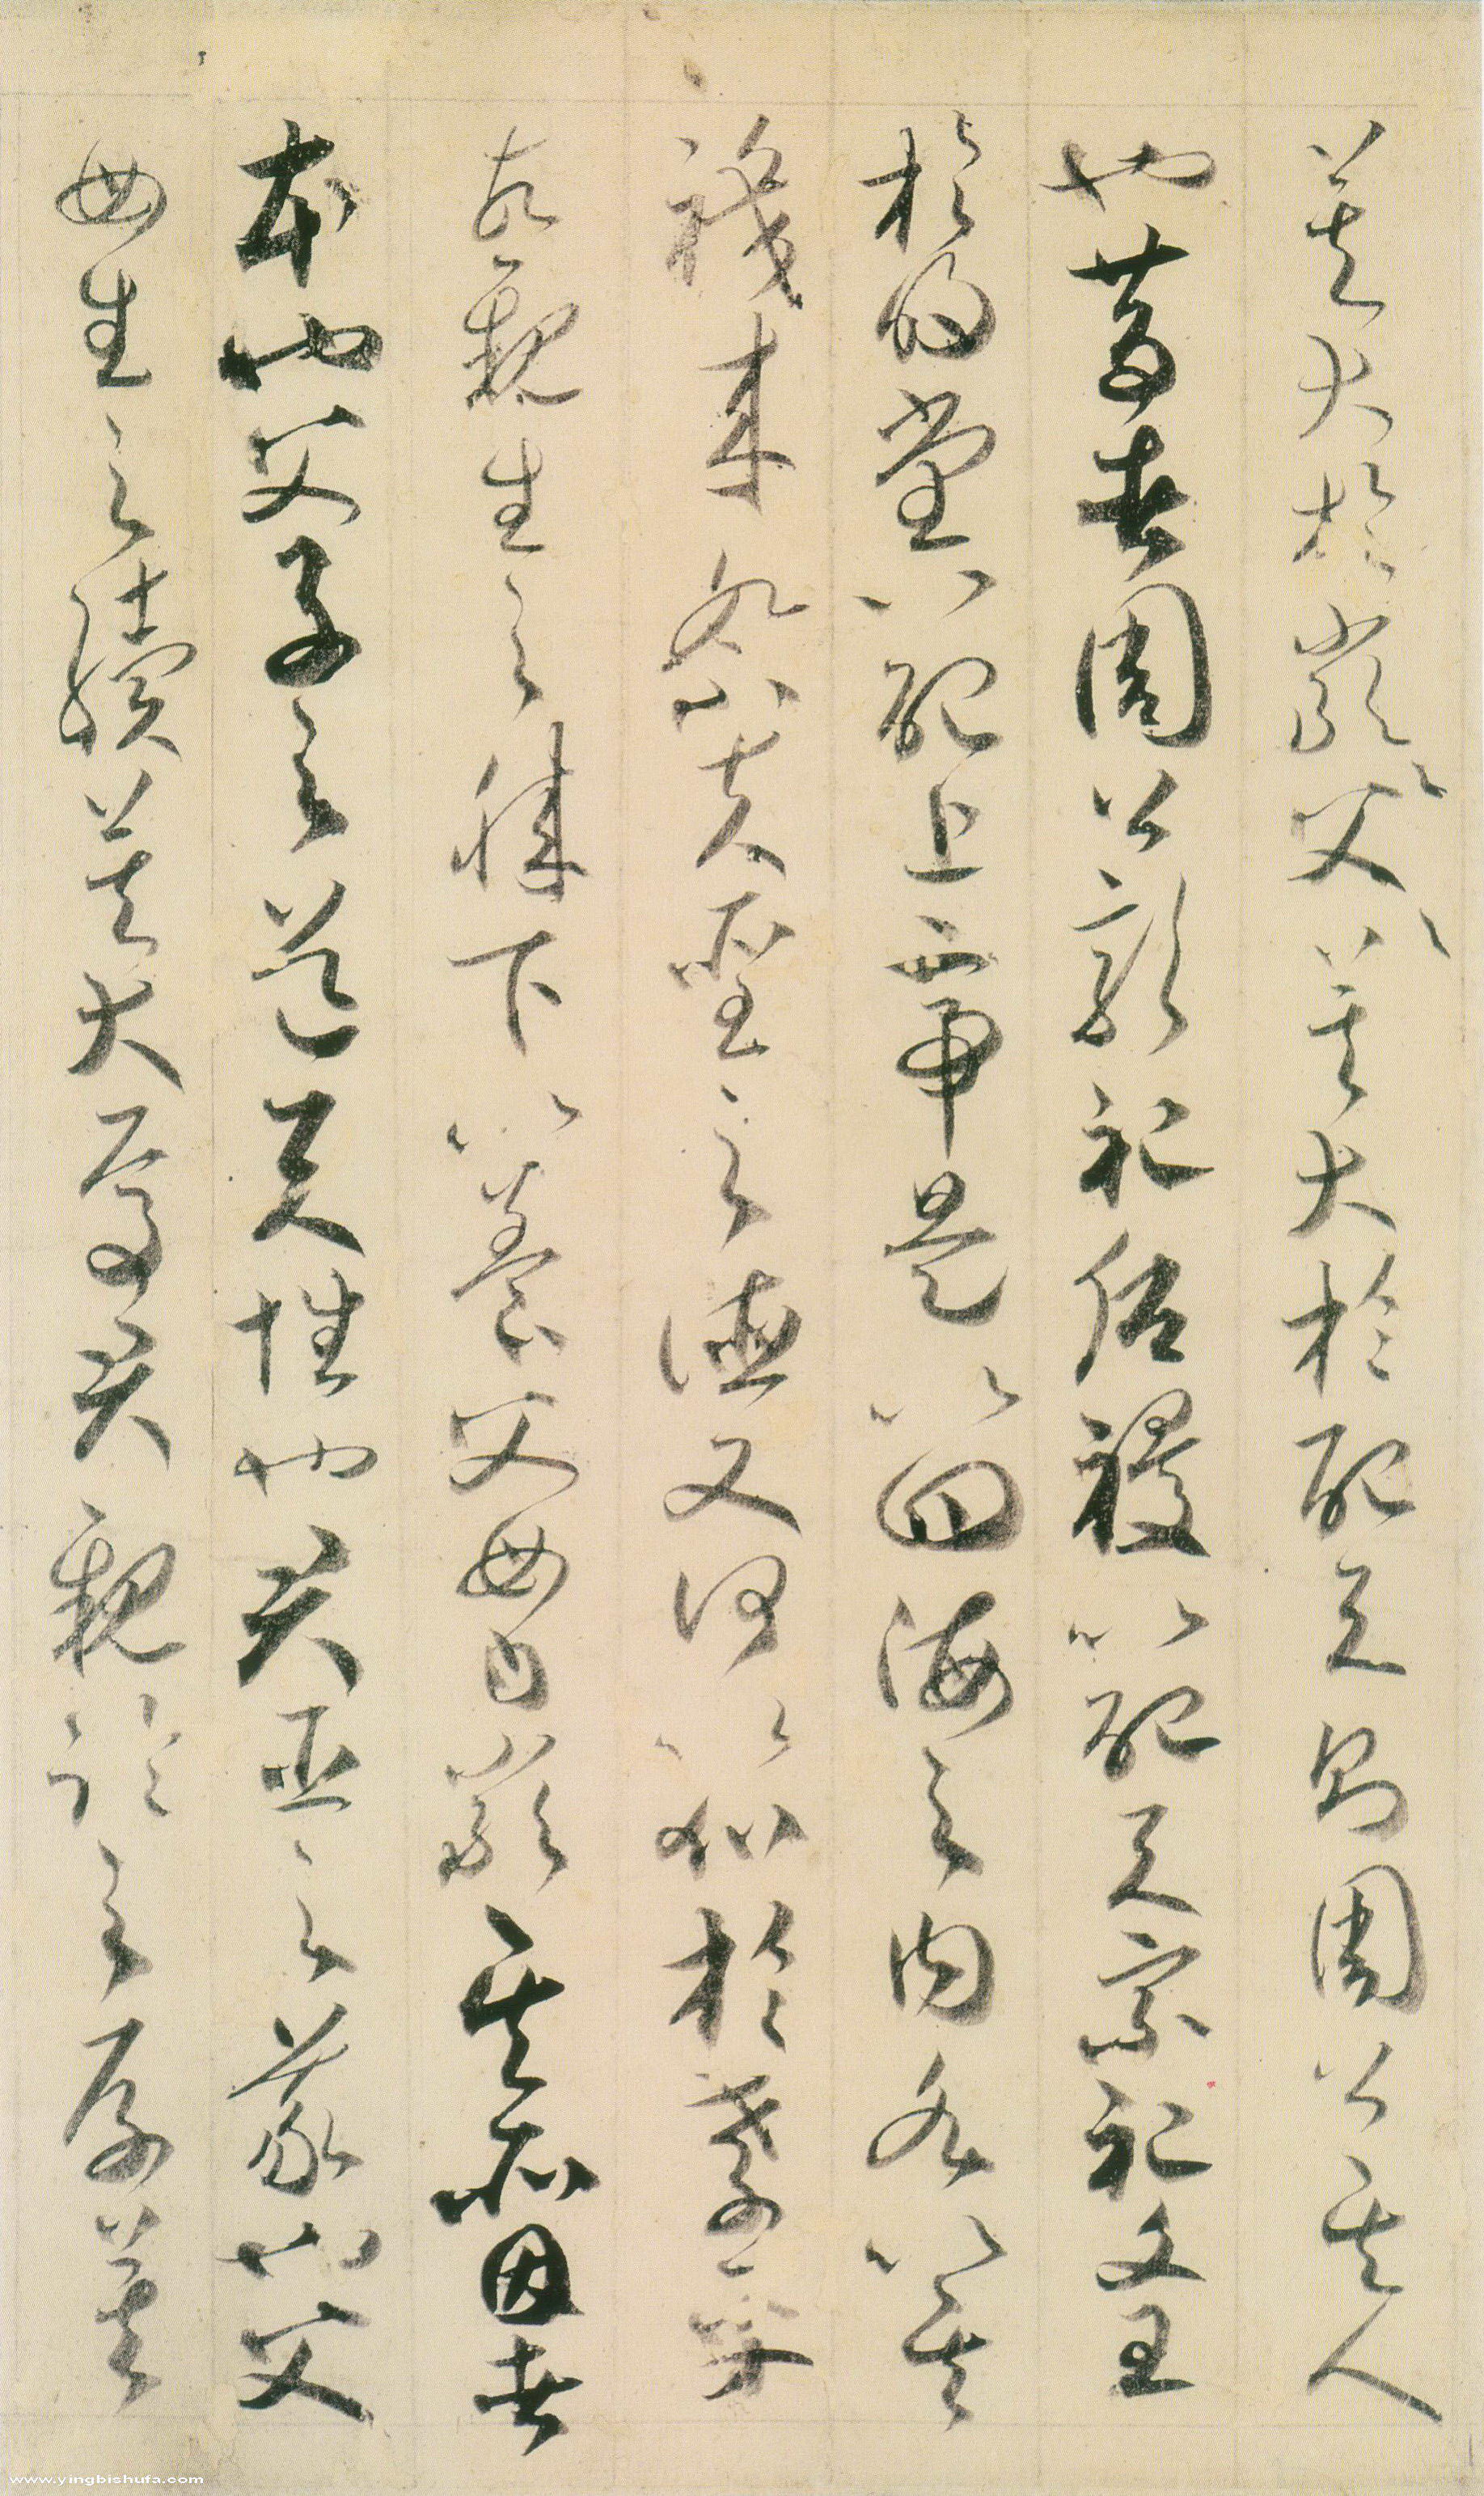 莫大於嚴〻父〻莫大於配天則周公其人
也昔者周公郊祀后稷以配天宗祀文王
於明堂以配上帝是以四海之内各以其
職来祭夫聖之德又何以加於孝乎
故親生之膝下以養父母日嚴其所因者
本也父子之道天性也君臣之義也父
母生之續莫大焉君親臨之厚莫
www.yingbishufa.com